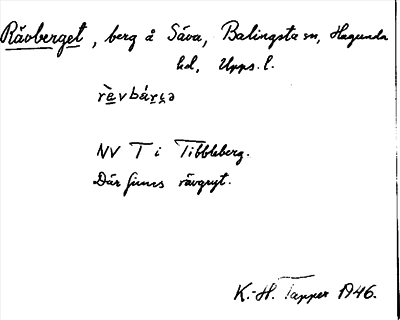 Rävberget, berg å Säva, Balingsta sn, Hagunda
hd, Upps. l.
NV T i Tibbleberg.
Där finns rävgryt.
K.-H. Tapper 1946.